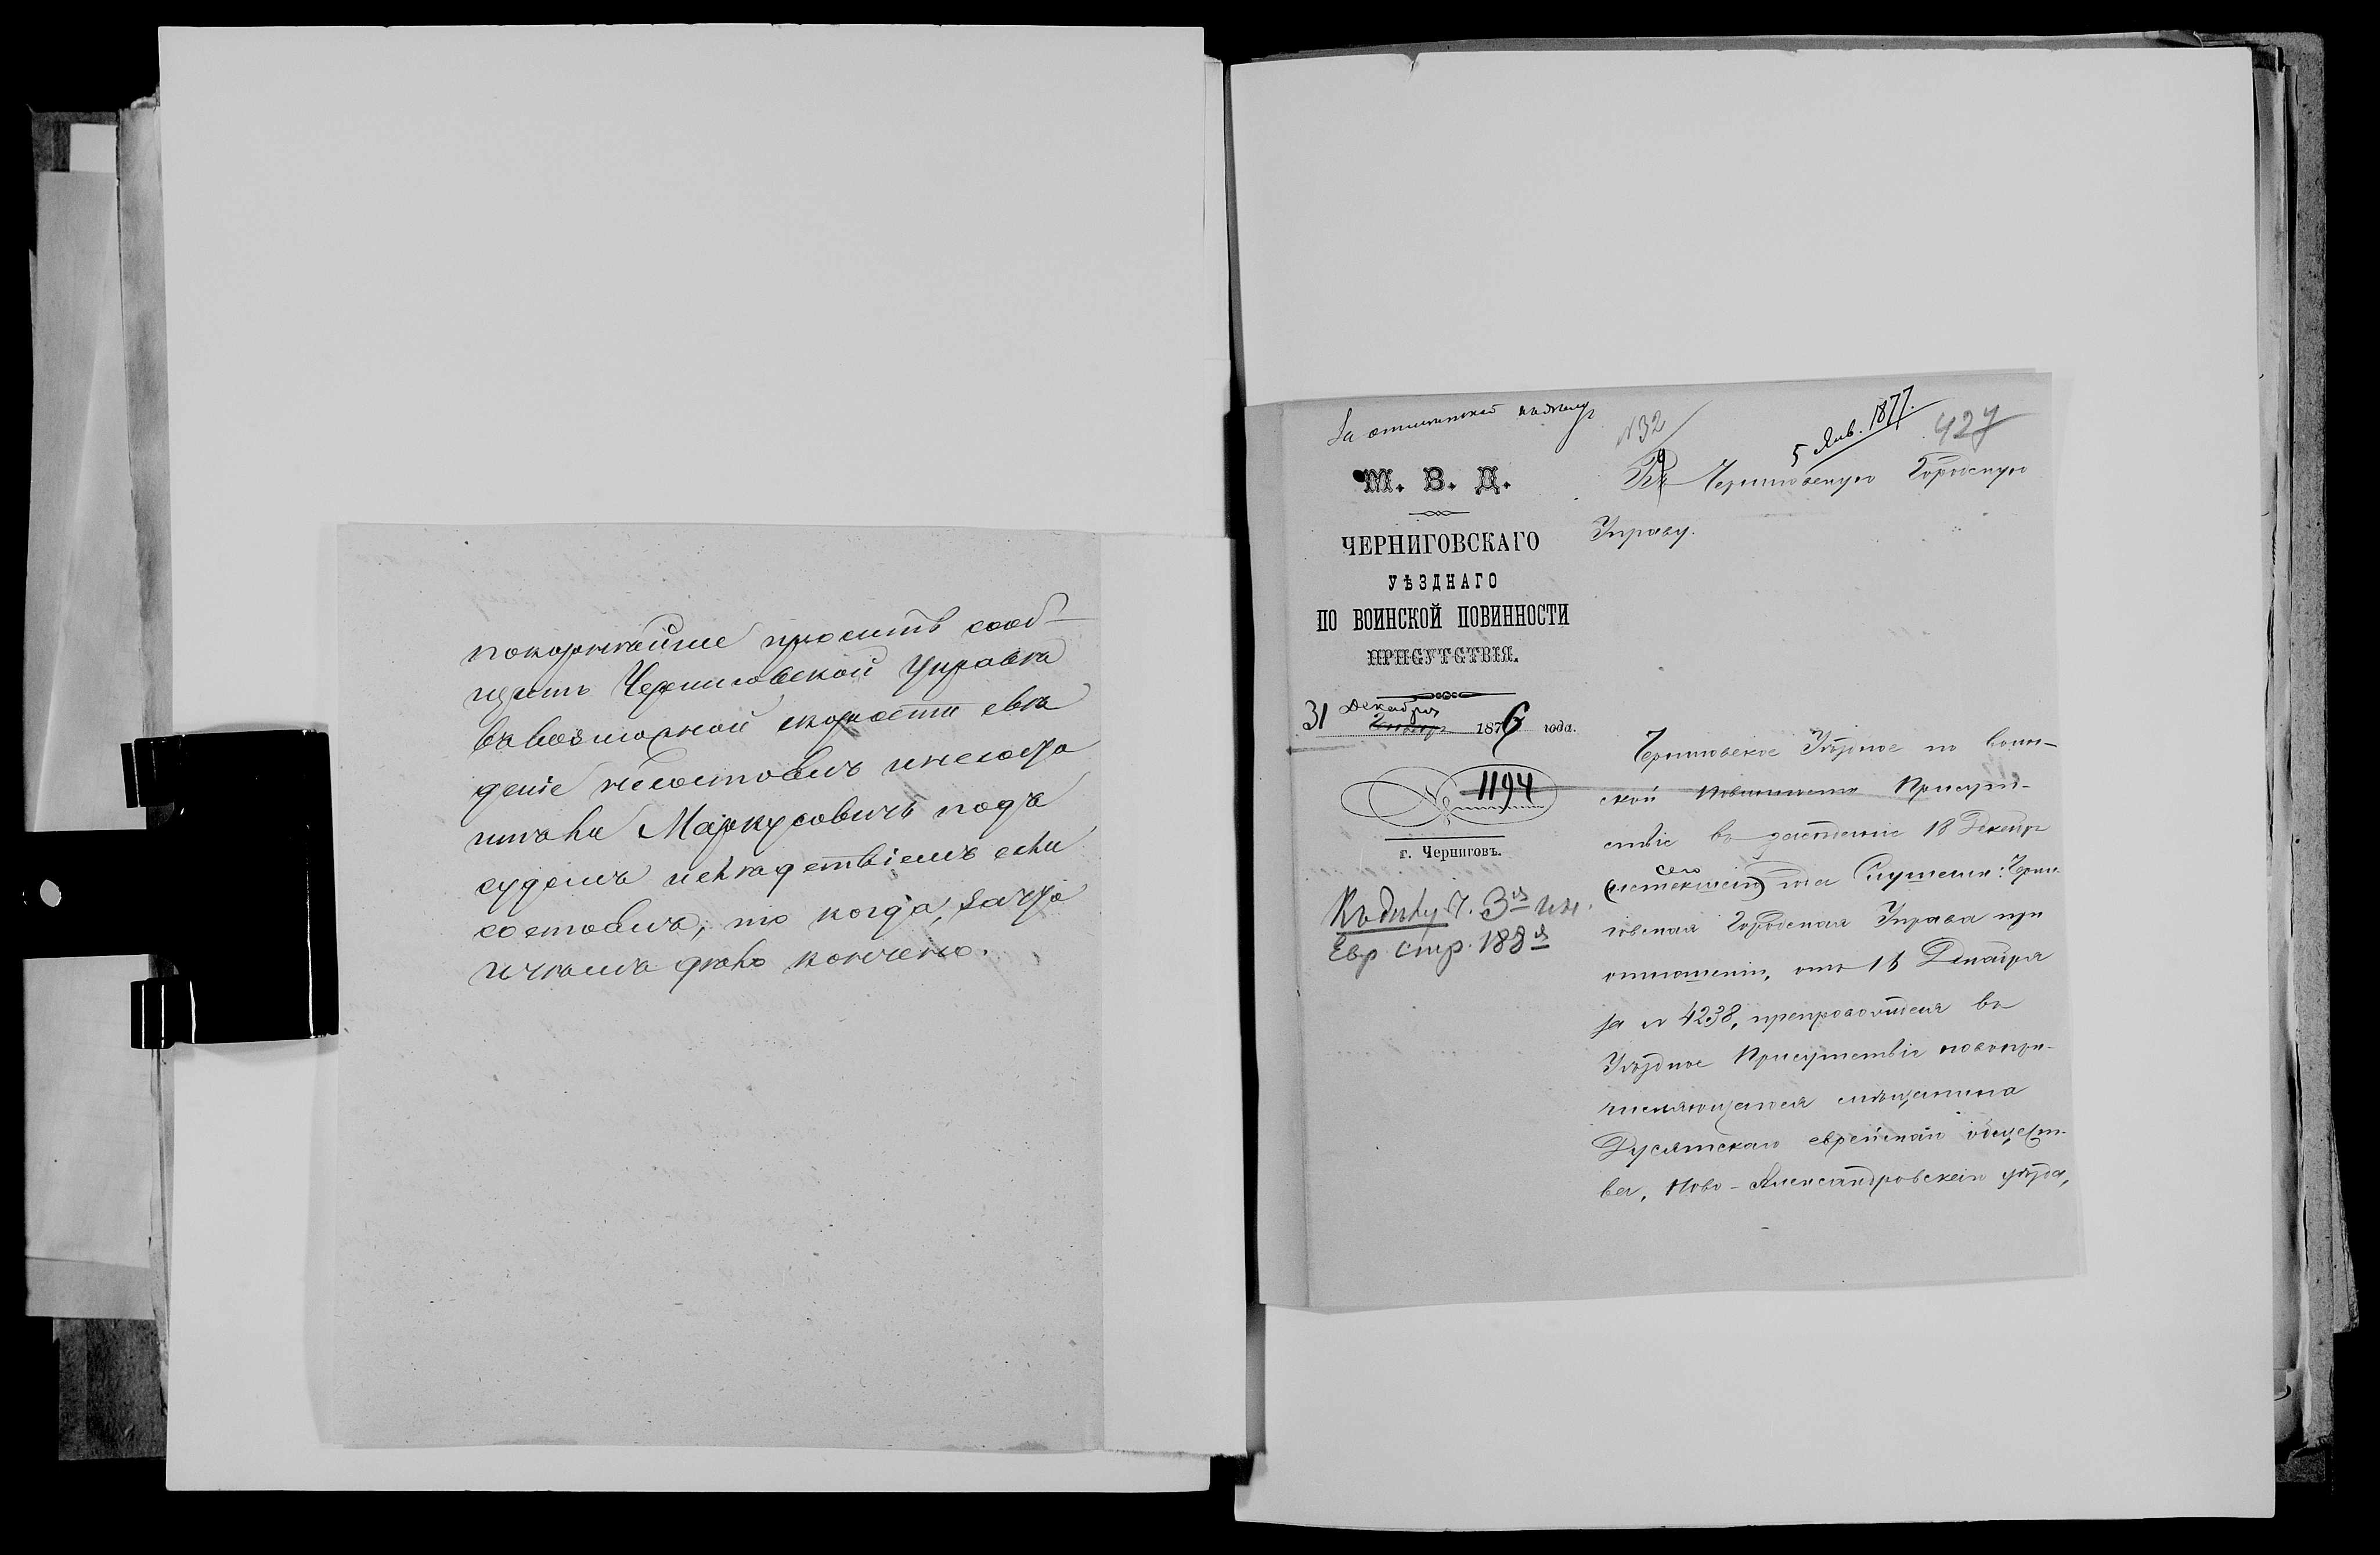 покорнѣйше проситъ сооб-
щить Черниговской Управѣ
въ возможной скорости свѣ
денiе несостоялъ и несосто
итъ ли Маркусовичъ подъ
судомъ и слѣдствiемъ если
состоялъ, то когда, за что
и чѣмъ дѣло кончено.
За отметкой къ дѣлу
№32
5 Янв. 1877.
427
М. В. Д.
ЧЕРНИГОВСКАГО
УѢЗДНАГО
ПО ВОИНСКОЙ ПОВИННОСТИ
ПРИСУТСТВІЯ.
31 Декабря 1876 года.
№ 1194
г. Черниговъ.
Къ дѣлу ч. 3й
Евр. стр. 188й
Въ Черниговскую Городскую
Управу.
Черниговское Уѣздное по воин-
ской Повинности Присут-
ствіе въ засѣданіе 18 Декабр
сего
(истекшаго) года Слушали: Черни
говская Городская Управа при
отношеніи, отъ 16 Декабря
за № 4238, препроводила въ
Уѣздное Присутствіе новопри-
числяющагося мѣщанина
Дусятскаго еврейскаго общест-
ва, Ново-Александровскаго уѣзда,